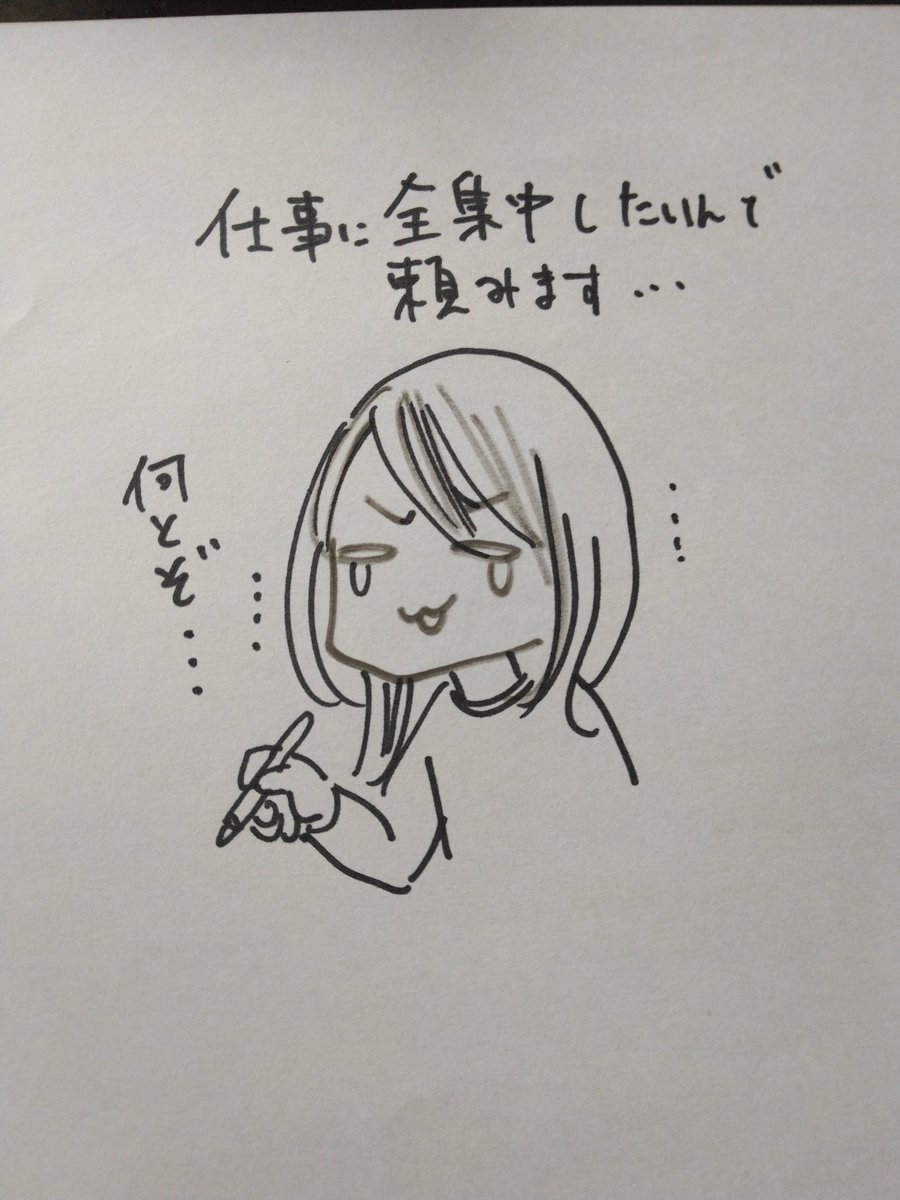 仕事に全集中したいんで
頼みます...
何とぞ...
....
....